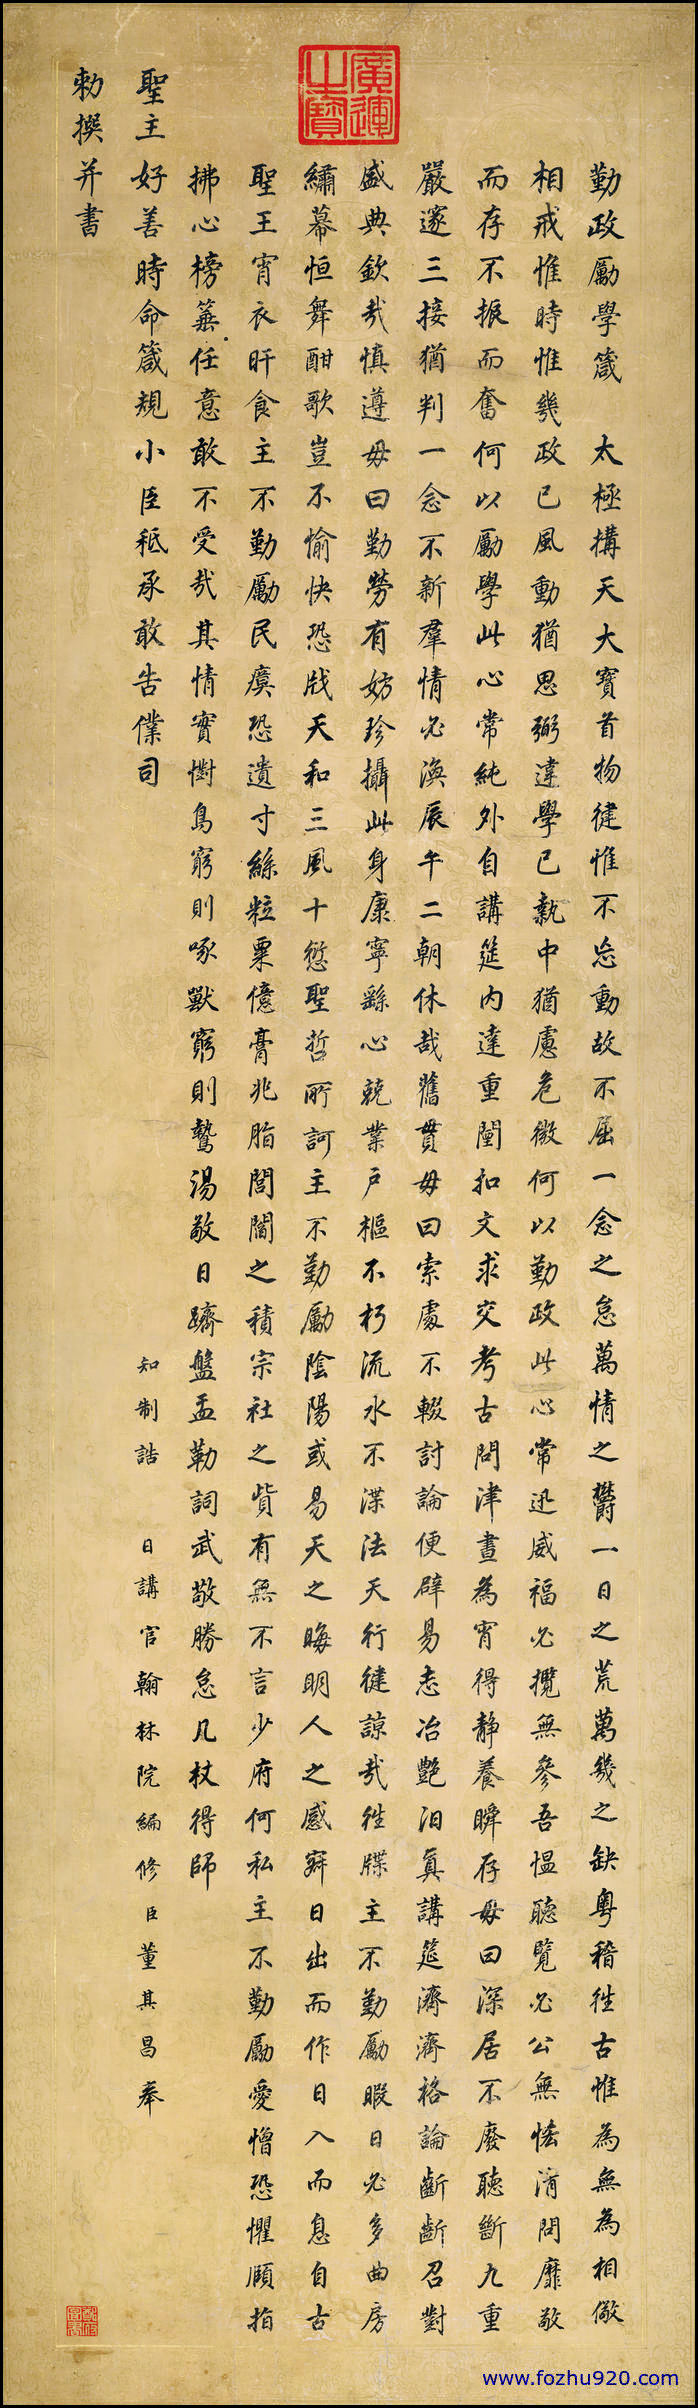 廣運之寶
勤政勵學箴 太極搆天大寶首物健惟不忘動故不屈一念之怠萬情之欝一日之荒萬幾之缺粵稽徃古惟為無為相儆
相戒惟時惟幾政已風動猶思弼違學已執中猶慮危微何以勤政此心常迅威福必攬無參吾愠聽覽必公無恡清問靡敢
而存不振而奮何以勵學此心常純外自講筵內達重闈扣文求交考古問津晝為宵得靜養瞬存毋曰深居不廢聽斷九重
嚴邃三接猶判一念不新羣情必渙辰午二朝休哉舊貫毋曰索處不輟討論便辟易志冶艷汨真講筵濟濟格論齗齗召對
盛典欽哉慎遵毋曰勤勞有妨珍攝此身康寧繇心兢業戶樞不朽流水不渫法天行健諒哉徃牒主不勤勵暇日必多曲房
繡幕恒舞酣歌豈不愉快恐戕天和三風十愆聖哲所訶主不勤勵陰陽或易天之晦明人之感寐日出而作日入而息自古
聖王宵衣旰食主不勤勵民瘼恐遺寸絲粒粟億膏兆脂閭閻之積宗社之貲有無不言少府何私主不勤勵愛憎恐懼頤指
拂心榜箠任意敢不受哉其情實懟鳥窮則啄獸窮則鷙湯敬日躋盤盂勒詞武敬勝怠几杖得師
聖主好善時命箴規小臣秪承敢告僕司 知制誥 日講官翰林院編修臣董其昌奉
勅撰并書
www.fozhu920.com